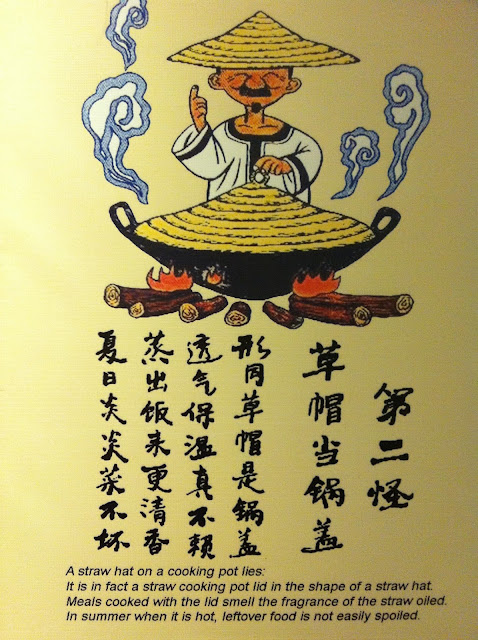 第二怪
草帽当锅盖
形同草帽是锅盖
透气保温真不赖
蒸出饭来更清香
夏日炎炎菜不坏
A straw hat on a cooking pot lies:
It is in fact a straw cooking pot lid in the shape of a straw hat.
Meals cooked with the lid smell the fragrance of the straw oiled.
In summer when it is hot, leftover food is not easily spoiled.